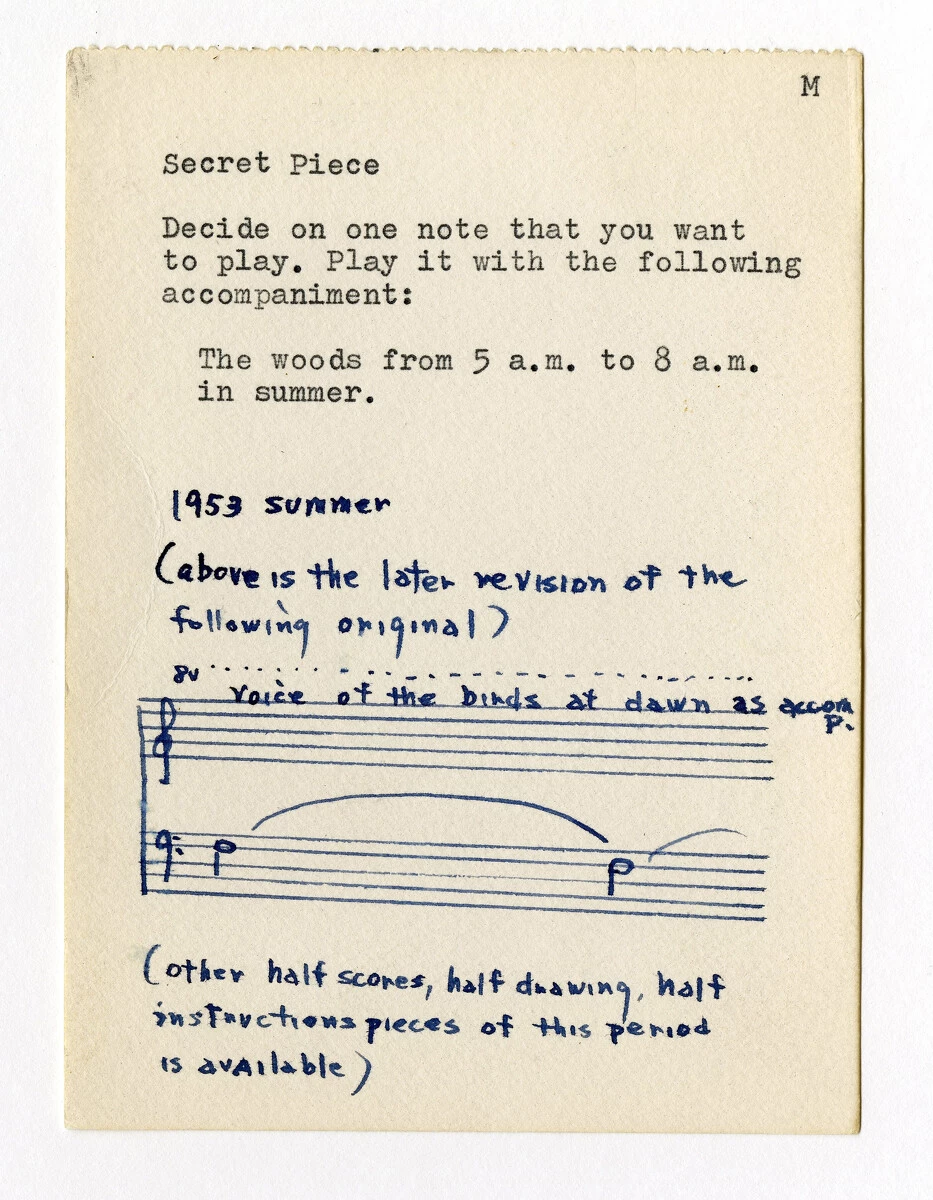 M
Secret Piece
Decide on one note that you want
to play. Play it with the following
accompaniment:
The woods from 5 a.m. to 8 a.m.
in summer.
1953 summer
(above is the later revision of the
following original)
8v
voice of the birds at dawn as accom
p.
(other half scores, half drawing, half
instructions pieces of this period
is available)